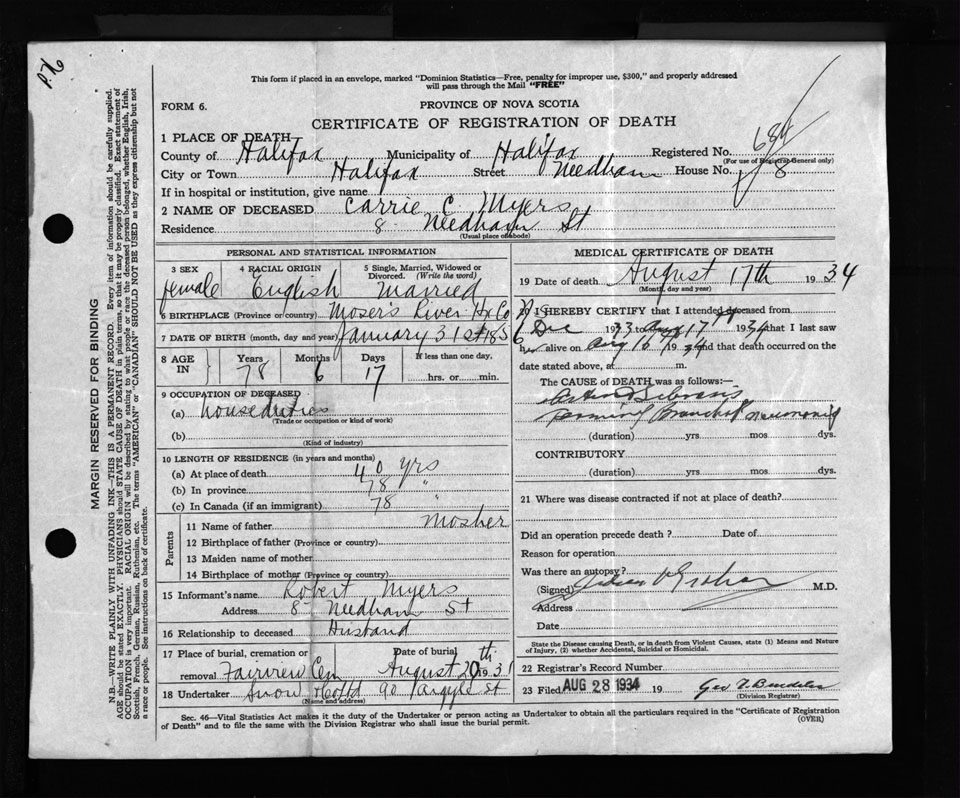 This form if placed in an envelope, marked "Dominion Statistics—Free, penalty for improper use, $300," and properly addressed
will pass through the Mail "FREE"
FORM 6.
PROVINCE OF NOVA SCOTIA
CERTIFICATE OF REGISTRATION OF DEATH
684
1 PLACE OF DEATH—
County of Halifax Municipality of Halifax Registered No.
(For use of Registrar General only)
City or Town Halifax Street Needham House No. 8
If in hospital or institution, give name
2 NAME OF DECEASED Carrie C. Myers
Residence 8 Needham St
(Usual place of abode)
PERSONAL AND STATISTICAL INFORMATION
3 SEX 4 RACIAL ORIGIN 5 Single, Married, Widowed or Divorced. (Write the word)
female English Married
6 BIRTHPLACE (Province or country) Moser's River Hx Co
7 DATE OF BIRTH (month, day and year) January 31st
8 AGE IN Years Months Days If less than one day,
78 6 17 hrs. or min.
9 OCCUPATION OF DECEASED
(a) house duties
(Trade or occupation or kind of work)
(b)
(Kind of industry)
10 LENGTH OF RESIDENCE (in years and months)
(a) At place of death 40 yrs
(b) In province 78 "
(c) In Canada (if an immigrant) 78 "
Parents
11 Name of father Mosher
12 Birthplace of father (Province or country)
13 Maiden name of mother
14 Birthplace of mother (Province or country)
15 Informant's name Robert Myers
Address 8 Needham St
16 Relationship to deceased Husband
17 Place of burial, cremation or Date of burial
removal Fairview Cem August 20th 1931
18 Undertaker Snow & Co Ltd 90 Argyle St
(Name and address)
MEDICAL CERTIFICATE OF DEATH
19 Date of death August 17th 1934
(Month, day and year)
20 I HEREBY CERTIFY that I attended deceased from
Dec 1933 to Aug 17 1934 that I last saw
her alive on Aug 16 1934 and that death occurred on the
date stated above, at m.
The CAUSE of DEATH was as follows:—
Pneumonia
(duration) yrs mos dys.
CONTRIBUTORY
(duration) yrs. mos. dys.
21 Where was disease contracted if not at place of death?
Did an operation precede death? Date of
Reason for operation
Was there an autopsy?
(Signed) Graham M.D.
Address
Date
State the Disease causing Death, or in death from Violent Causes, state (1) Means and Nature
of Injury, (2) whether Accidental, Suicidal or Homicidal.
22 Registrar's Record Number
23 Filed AUG 28 1934 19
(Division Registrar)
Sec. 46—Vital Statistics Act makes it the duty of the Undertaker or person acting as Undertaker to obtain all the particulars required in the "Certificate of Registration
of Death" and to file the same with the Division Registrar who shall issue the burial permit.
(OVER)
MARGIN RESERVED FOR BINDING
N.B.—WRITE PLAINLY WITH UNFADING INK—THIS IS A PERMANENT RECORD. Every item of information should be carefully supplied.
AGE should be stated EXACTLY. PHYSICIANS should STATE CAUSE OF DEATH in plain terms, so that it may be properly classified. Exact statement of
OCCUPATION is very important. RACIAL ORIGIN will be described by stating to what people or race the deceased person belonged, whether English, Irish,
Scottish, French, German, Russian, Ruthenian, etc. The terms "AMERICAN" or "CANADIAN" SHOULD NOT BE USED as they express citizenship but not
a race or people. See instructions on back of certificate.